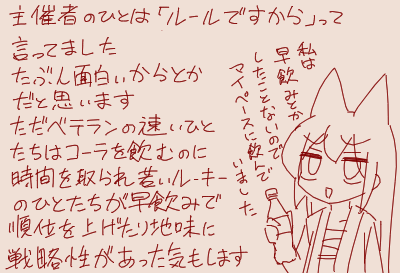 主催者のひとは「ルールですから」って
言ってました
たぶん面白いからとか
だと思います
ただベテランの速いひと
たちはコーラを飲むのに
時間を取られ若いルーキー
のひとたちが早飲みで
順位を上げたり地味に
戦略性があった気もします
私は
早飲みとか
したことないので
マイペースに飲んで
いました